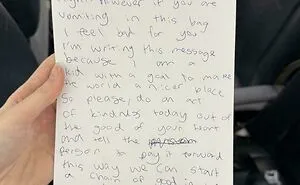 However if you are
vomiting in this bag
I feel bad for you
I'm writing this message
because I am a
kid with a goal to make
the world a nicer place
So please, do an act
of kindness today out of
the good of your heart
and tell the
person to pay it forward
this way we can start
a chain of good